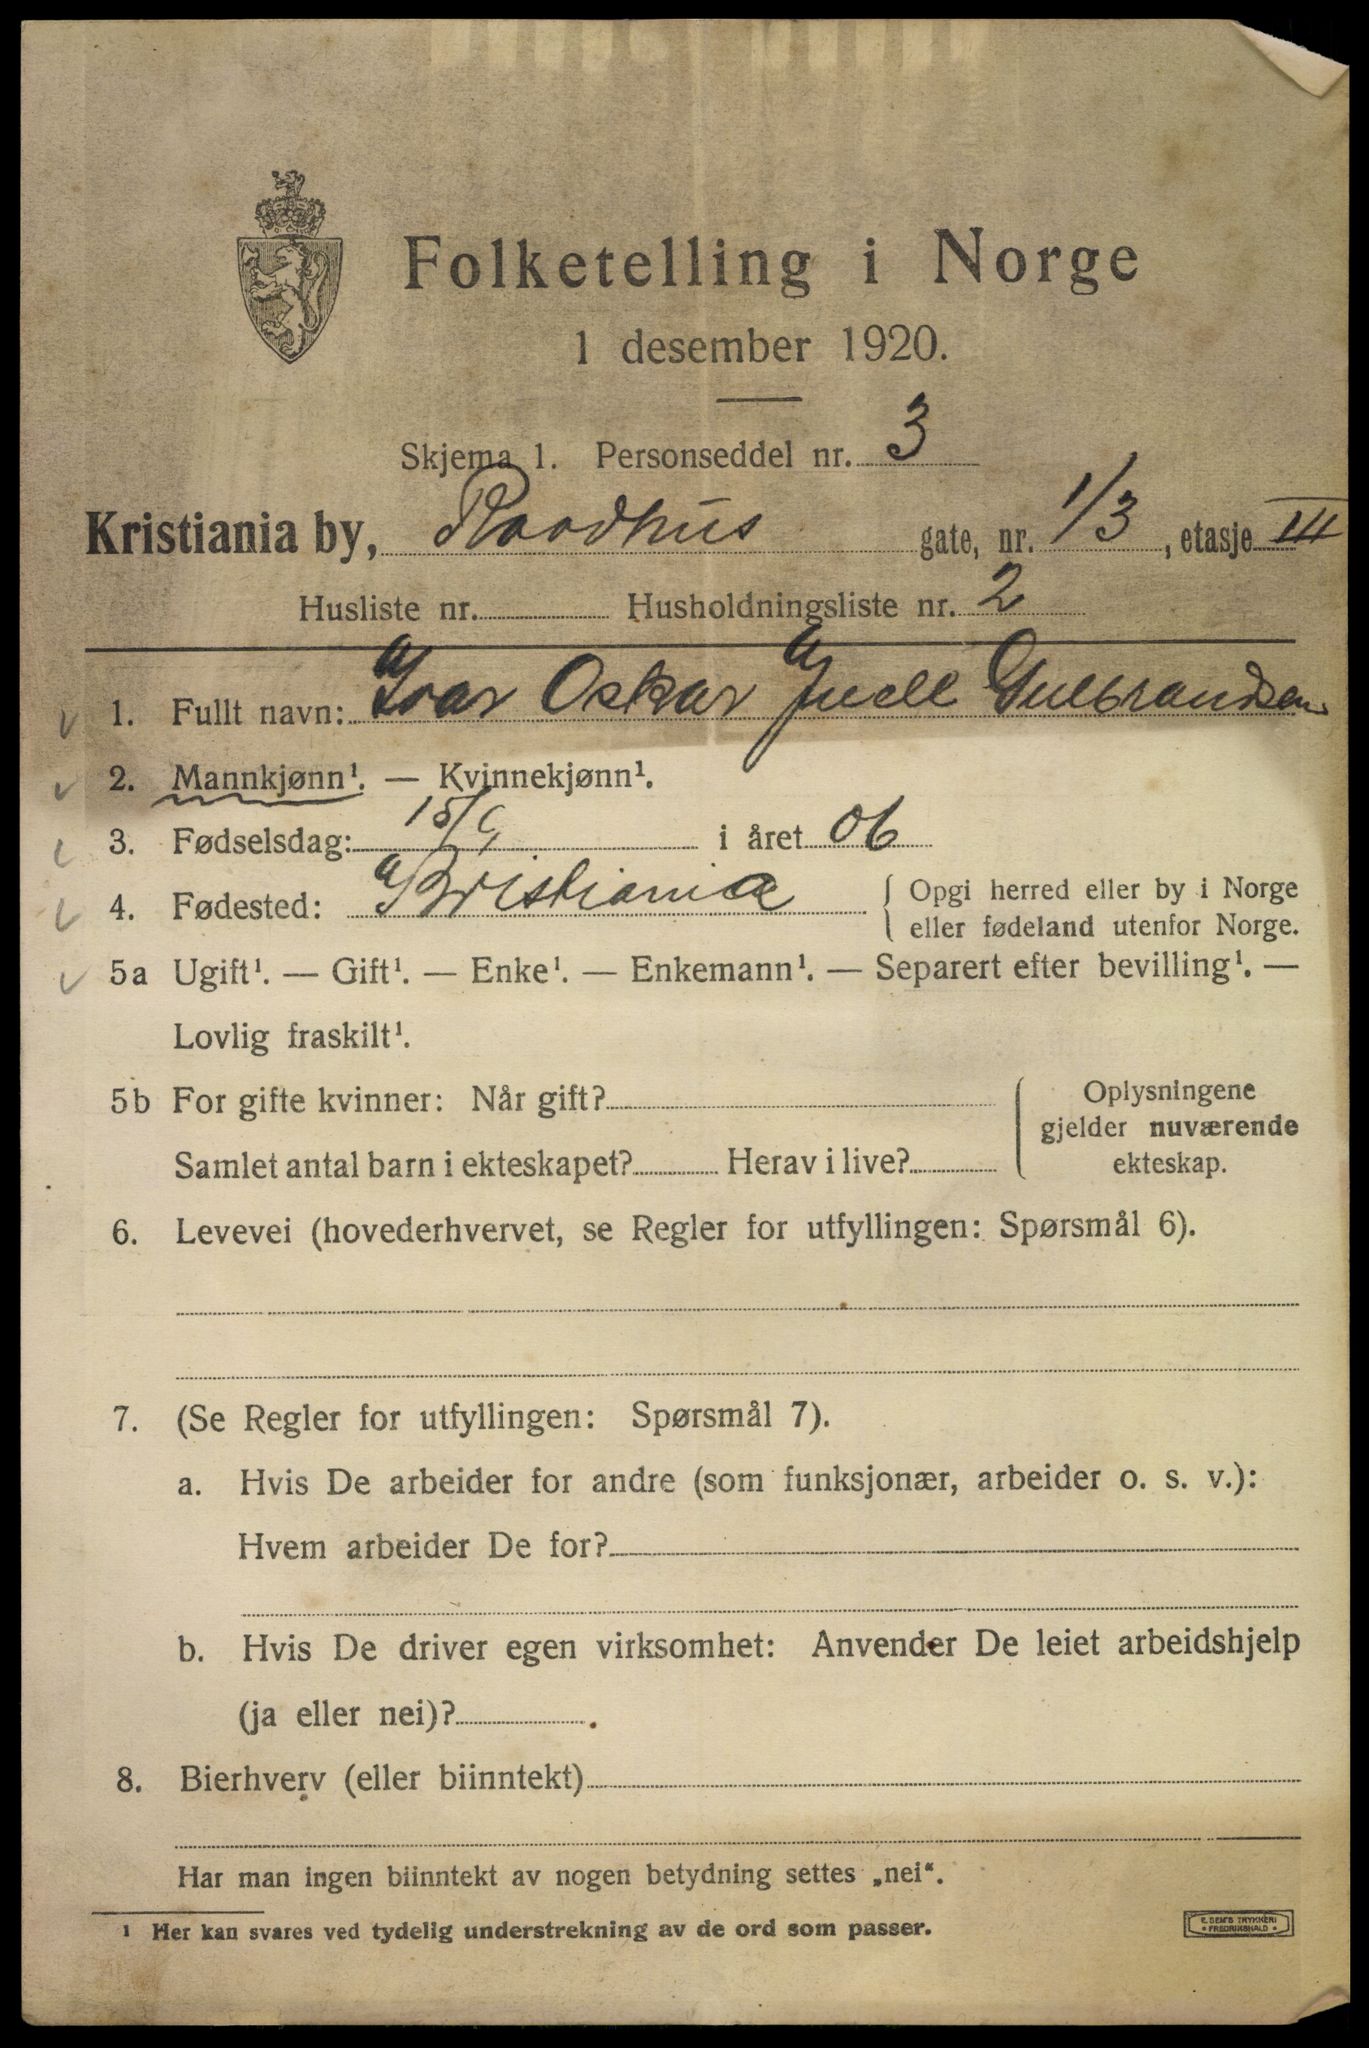 Folketelling i Norge
1 desember 1920.
Skjema 1. Personseddel nr. 3
Kristiania by, Raadhus gate, nr. 1/3, etasje III
Husliste nr. Husholdningsliste nr. 2
1. Fullt navn: Ivar Oskar Juell Gulbrandsen
2. Mannkjønn¹. — Kvinnekjønn¹.
3. Fødselsdag: 15/9 i året 06
4. Fødested: Kristiania { Opgi herred eller by i Norge
eller fødeland utenfor Norge.
5a Ugift¹. — Gift¹. — Enke¹. — Enkemann¹. — Separert efter bevilling¹. —
Lovlig fraskilt¹.
5b For gifte kvinner: Når gift?
Samlet antal barn i ekteskapet? Herav i live?
Oplysningene
gjelder nuværende
ekteskap.
6. Levevei (hovederhvervet, se Regler for utfyllingen: Spørsmål 6).
7. (Se Regler for utfyllingen: Spørsmål 7).
a. Hvis De arbeider for andre (som funksjonær, arbeider o. s. v.):
Hvem arbeider De for?
b. Hvis De driver egen virksomhet: Anvender De leiet arbeidshjelp
(ja eller nei)?
8. Bierhverv (eller biinntekt)
Har man ingen biinntekt av nogen betydning settes „nei“.
¹ Her kan svares ved tydelig understrekning av de ord som passer.
E. SEM'S TRYKKERI
* FREDRIKSHALD *